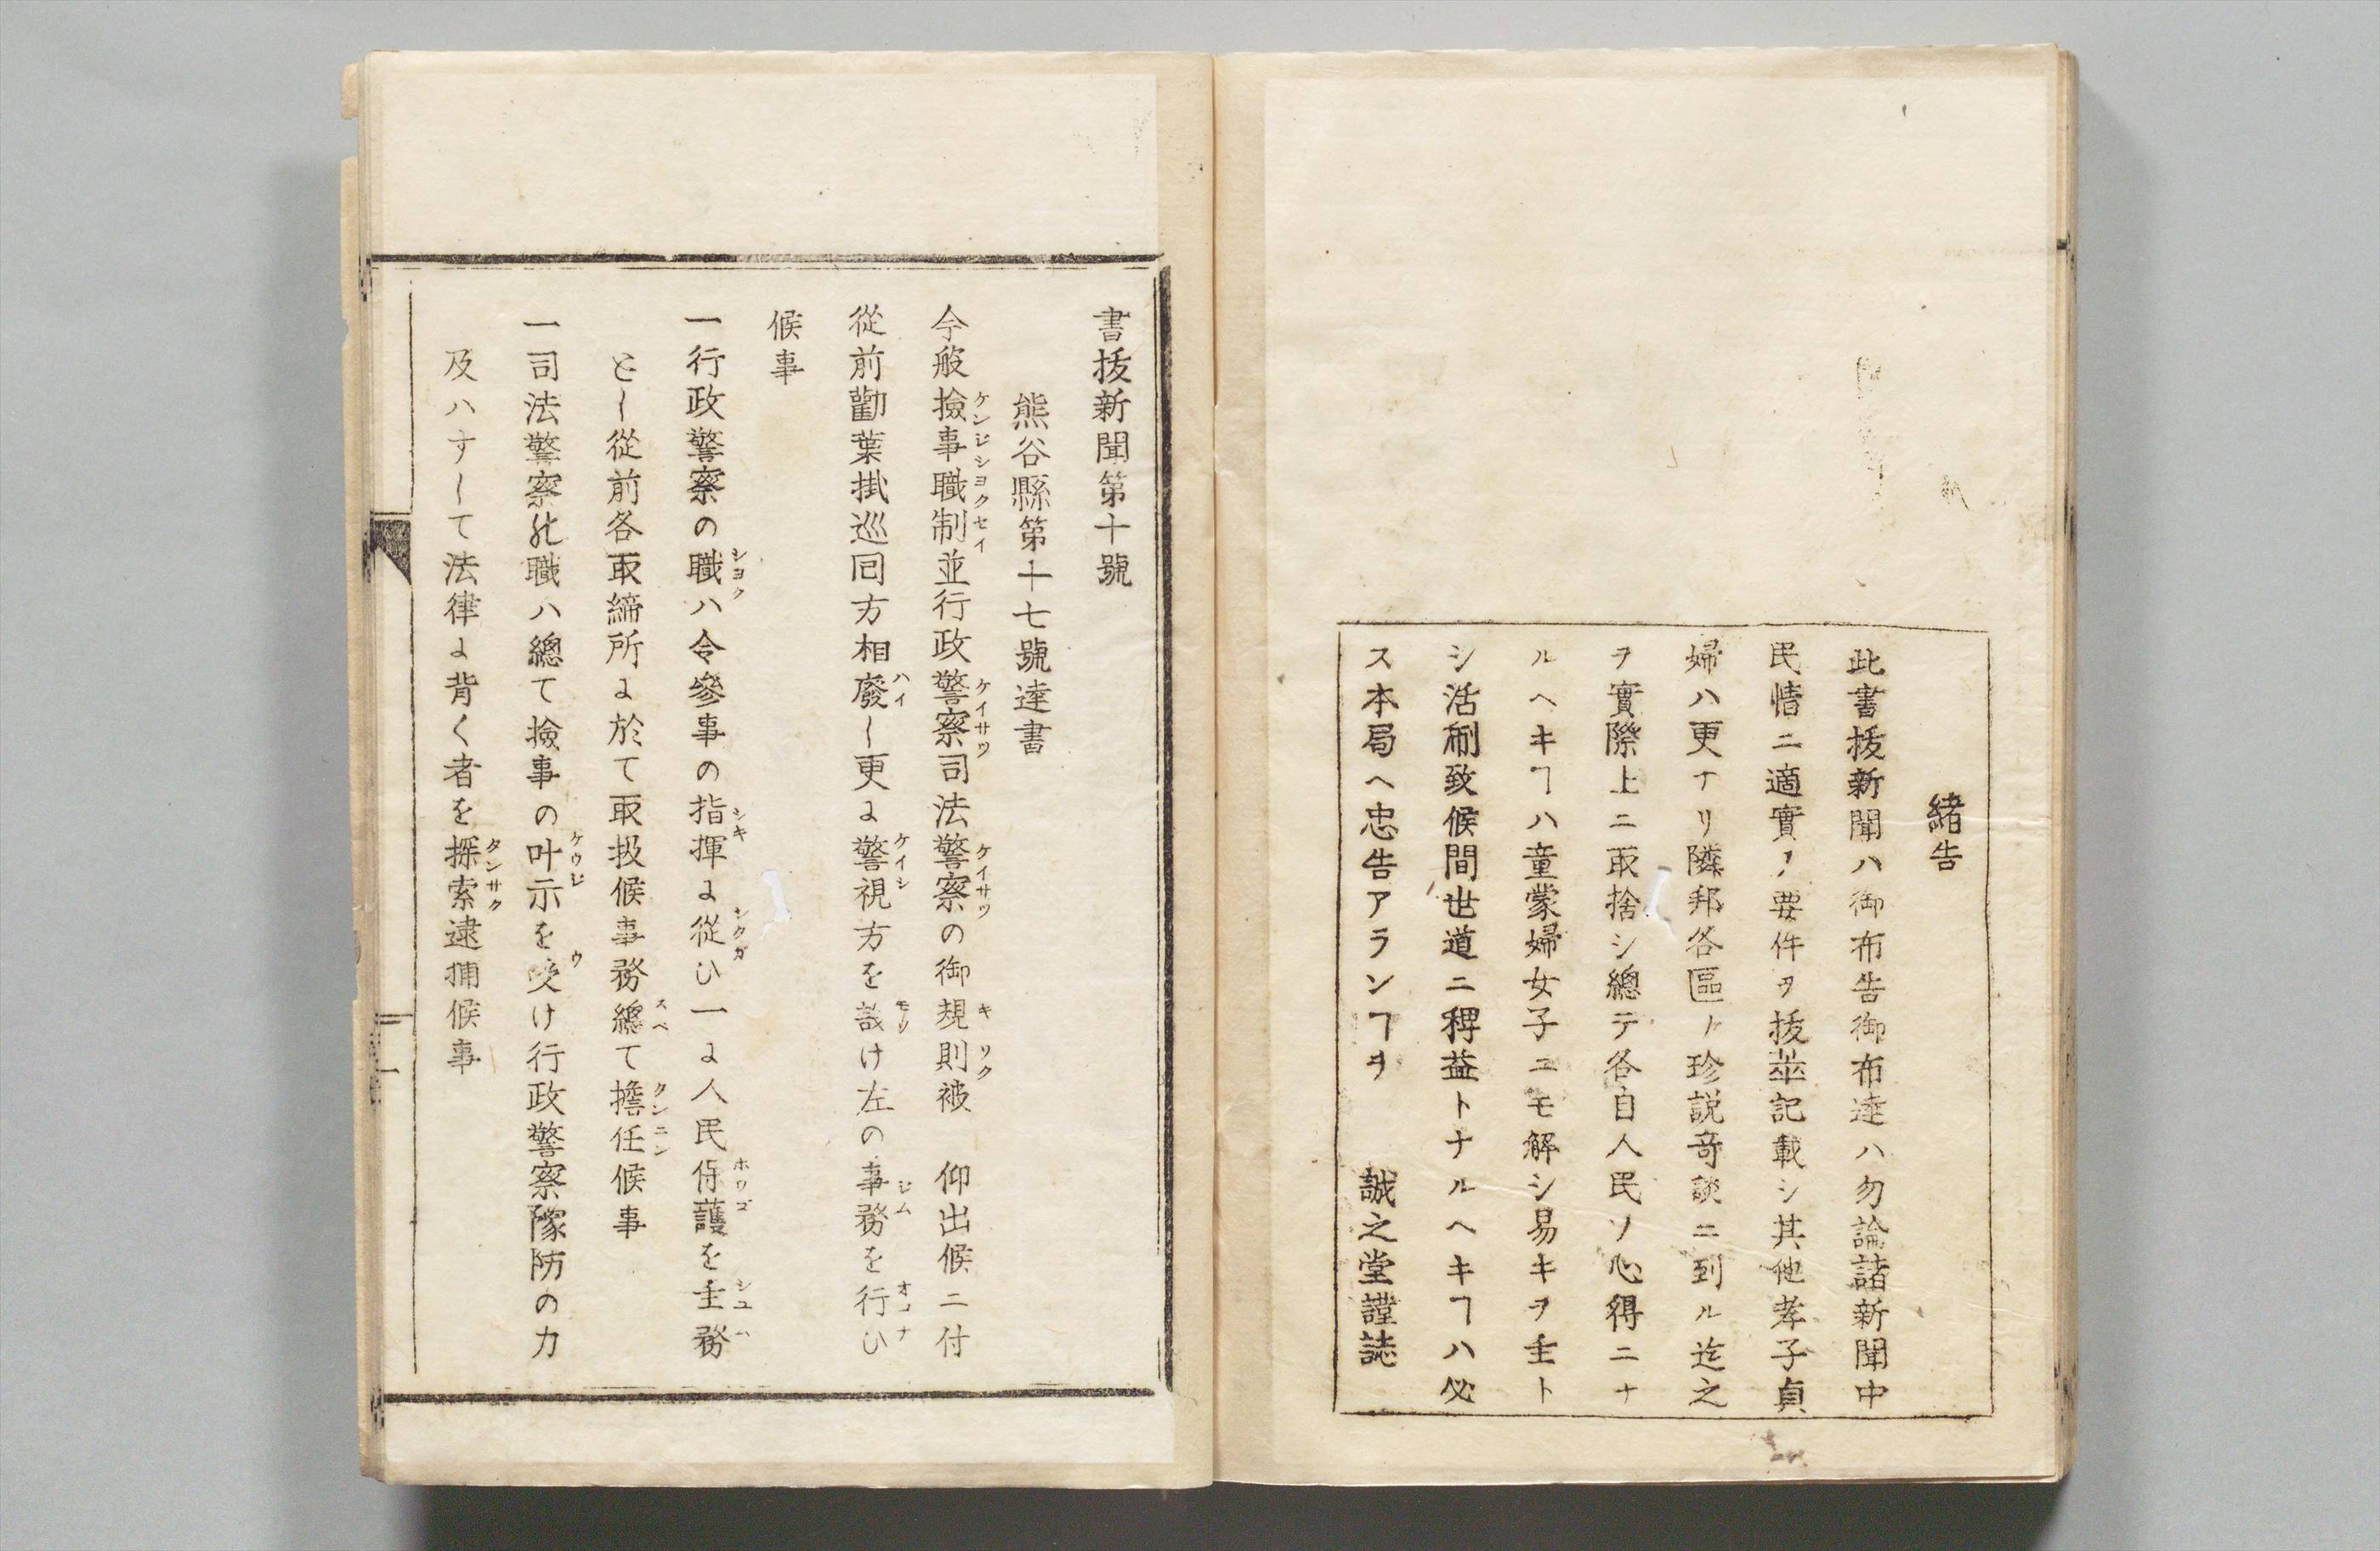 緒告
此書抜新聞ハ御布告御布達ハ勿論諸新聞中
民情ニ適實ノ要件ヲ抜萃記載シ其他孝子貞
婦ハ更ナリ隣邦各區ノ珍説奇談ニ到ル迄之
ヲ實際上ニ取捨シ總テ各自人民ノ心得ニナ
ルヘキヿハ童蒙婦女子ニモ解シ易キヲ主ト
シ活刷致候間世道ニ稗益トナルヘキヿハ必
ス本局ヘ忠告アランヿヲ 誠之堂謹誌
書抜新聞第十號
熊谷縣第十七號達書
今般撿事職制並行政警察司法警察の御規則被 仰出候ニ付
ケンジシヨクセイ ケイサツ ケイサツ キソク
從前勸業掛巡囘方相廢し更に警視方を設け左の事務を行ひ
ハイ ケイシ モウ ジム オコナ
候事
一行政警察の職ハ令參事の指揮に從ひ一に人民保護を主務
シヨク シキ シタガ ホウゴ シユム
とし從前各取締所に於て取扱候事務總て擔任候事
スベ タンニン
一司法警察の職ハ總て撿事の叶示を受け行政警察豫防の力
ケウジ ウ
及ハすして法律に背く者を探索逮捕候事
タンサク